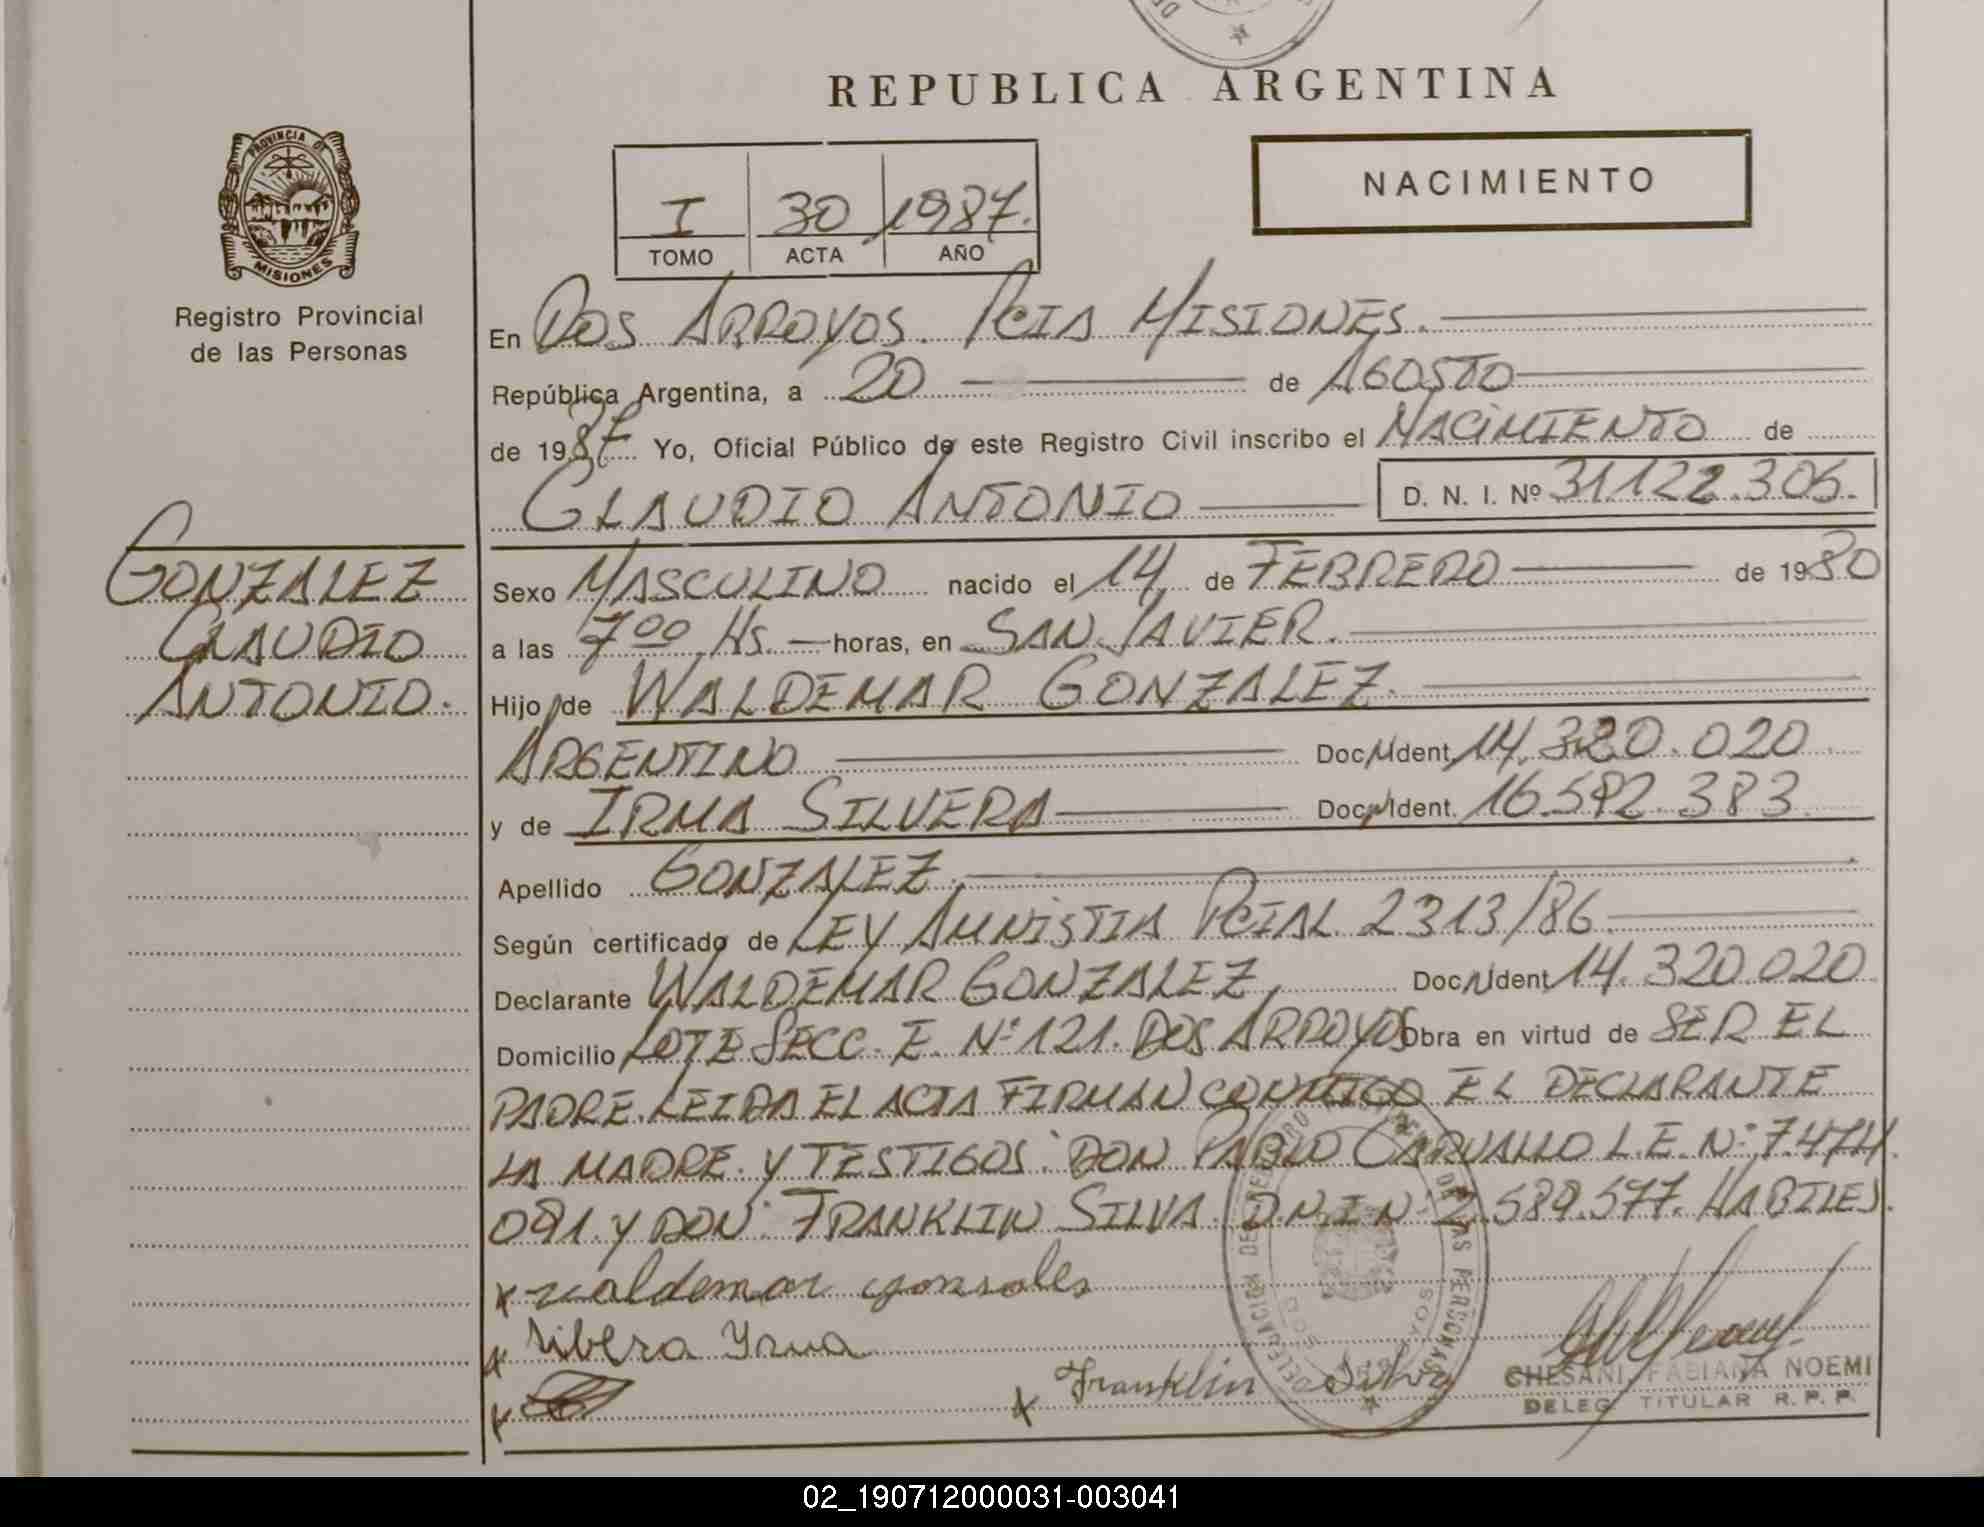 REPUBLICA ARGENTINA
PROVINCIA DE
MISIONES
Registro Provincial
de las Personas
I 30 1987.
TOMO ACTA AÑO
NACIMIENTO
En DOS ARROYOS. PCIA MISIONES.
República Argentina, a 20 de AGOSTO
de 1987 Yo, Oficial Público de este Registro Civil inscribo el NACIMIENTO de
CLAUDIO ANTONIO D. N. I. Nº 31.122.305.
GONZALEZ
CLAUDIO
ANTONIO.
Sexo MASCULINO nacido el 14 de FEBRERO de 1980
a las 7 00 Hs. horas, en SAN JAVIER.
Hijo de WALDEMAR GONZALEZ.
ARGENTINO Doc. Ident. 14.320.020
y de IRMA SILVERA Doc. Ident. 16.592.383
Apellido GONZALEZ.
Según certificado de LEY AMNISTIA PCIAL 2313/86.
Declarante WALDEMAR GONZALEZ, Doc. Ident 14.320.020
Domicilio LOTE SECC. E. Nº 121. DOS ARROYOS Obra en virtud de SER EL
PADRE. LEIDA EL ACTA FIRMAN CONMIGO EL DECLARANTE
LA MADRE. Y TESTIGOS: DON PABLO CARVALLO L.E. Nº 7.474.
091. Y DON: FRANKLIN SILVA. D.N.I. Nº 2.589.577. HABILES.
x waldemar gonsales
x ribera Yrma
x
x Franklin Silva
CHESANI, FABIANA NOEMI
DELEG. TITULAR R. P. P.
02_190712000031-003041